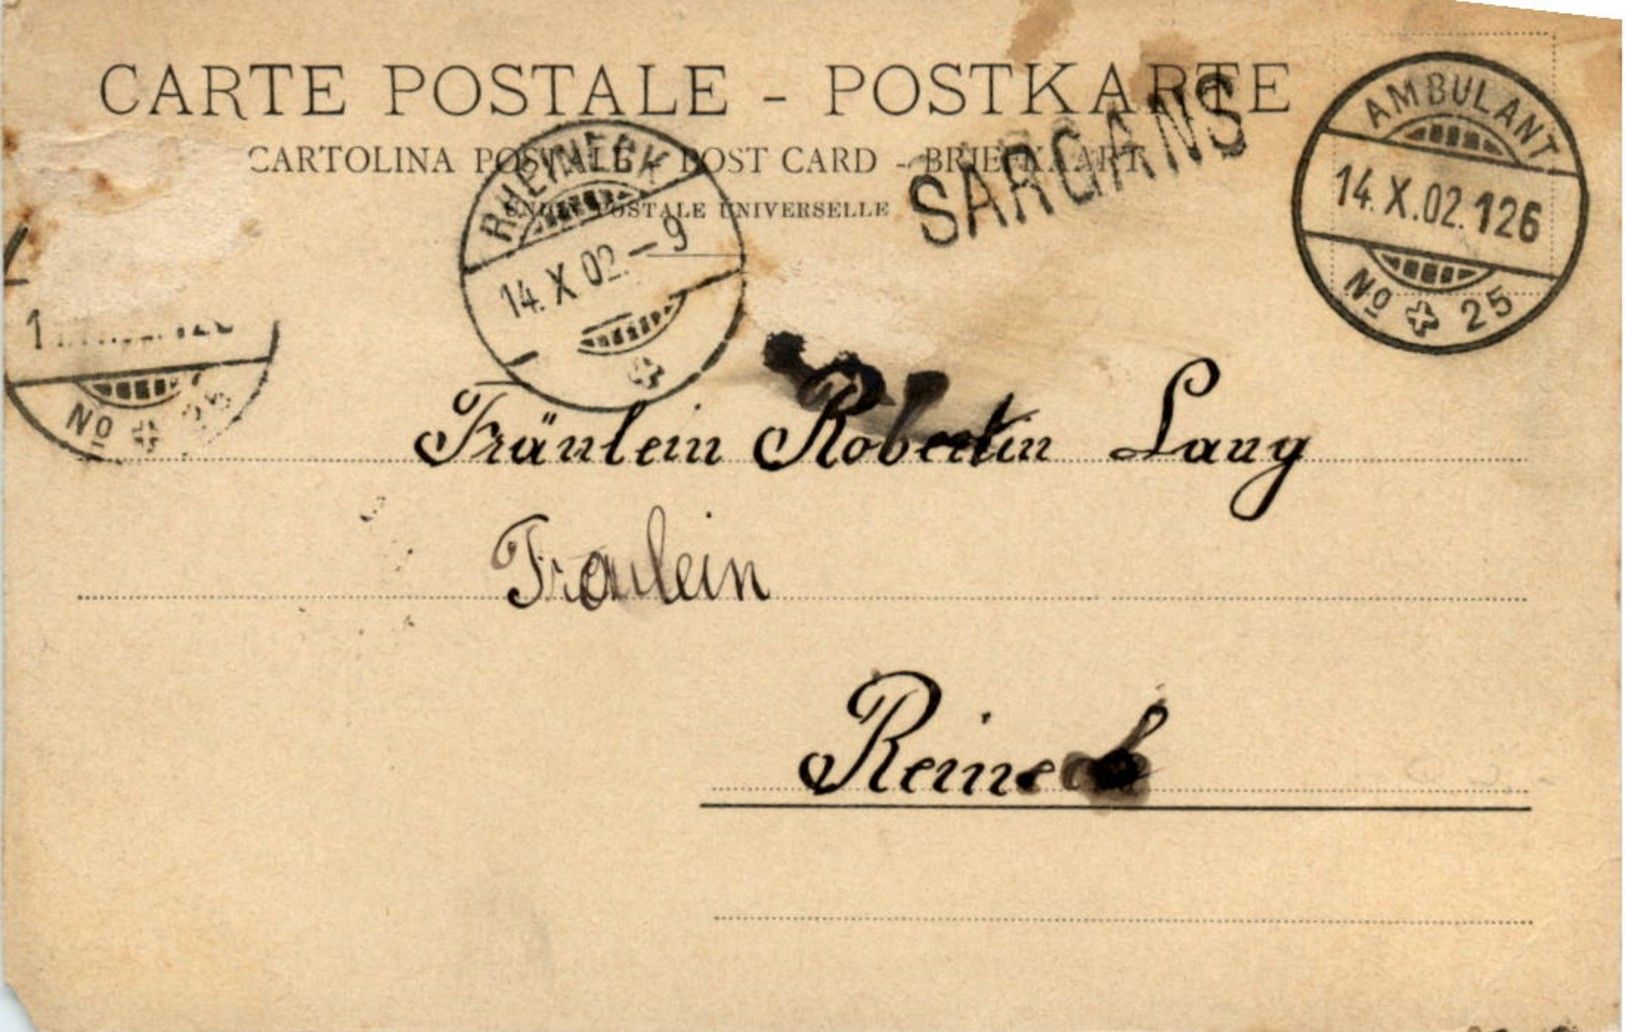 CARTE POSTALE - POSTKARTE
CARTOLINA POSTALE - POST CARD - BRIEFKAART
POSTALE UNIVERSELLE
SARGANS
AMBULANT
14.X.02.126
No 25
RHEINECK
14.X.02.-9
No 25
Fräulein Robertin Lang
Fraulein
Reineck